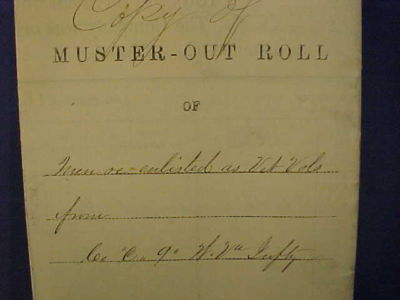 Copy of
MUSTER-OUT ROLL
OF
re-enlisted as Vet Vols
from
Co "C" 9" W. Va Infty